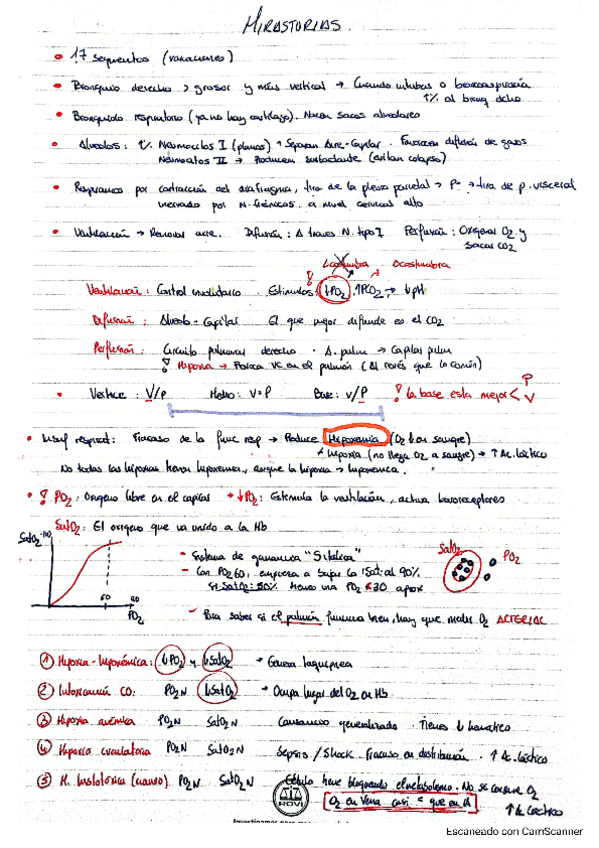 MIRASTORIAS.
• 17 segmentos (variaciones)
• Bronquio derecho > grosor y más vertical → Cuando intubas o broncoaspiración
↑% al bronq dcho
• Bronquiolo respiratorio (ya no hay cartílago). Nacen sacos alveolares
• Alveolos: ↑% Neumocitos I (planos) → Separan Aire-Capilar. Favorecen difusión de gases
Neumocitos II → Producen surfactante (evitan colapso)
• Respiramos por contracción del diafragma, tira de la pleura parietal → P⁻ → tira de p. visceral
inervado por N. frénicos. a nivel cervical alto
• Ventilación → Renovar aire. Difusión: A través N. tipo I Perfusión: Oxigenar O2 y
sacar CO2
Acostumbra
Ventilación: Control involuntario. Estímulos: ↓PO2, ↑PCO2, → ↓pH
Difusión: Alveolo-Capilar El que mejor difunde es el CO2
Perfusión: Circuito pulmonar derecho. A. pulm → Capilar pulm
! Hipoxia → Provoca VC en el pulmón (Al revés que lo común)
• Vertice: V/P Medio: V=P Base: V/P ! la base esta mejor < P
V
• Insuf respirat: Fracaso de la func resp → Produce Hipoxemia (O2 ↓ en sangre)
≠ Hipoxia (no llega O2 a sangre) → ↑ Ac. láctico
No todas las hipoxias tienen hipoxemia, aunque la hipoxia → hipoxemica.
• ! PO2: Oxigeno libre en el capilar • ↓PO2: Estimula la ventilación, activa barorreceptores
SatO2: El oxigeno que va unido a la Hb
SatO2 100
60
PO2
- Sistema de ganancia "Sitálica"
- Con PO2 60, empieza a bajar la !Sat: al 90%
Si SatO2: 50% tienes una PO2 30 aprox
SatO2
PO2
- Para saber si el pulmón funciona bien, hay que medir O2 ARTERIAL
① Hipoxia-hipoxémica: ↓PO2 y ↓SatO2 → Genera taquipnea
② Intoxicación CO: PO2N ↓SatO2 → Ocupa lugar del O2 en Hb
③ Hipoxia anémica PO2N SatO2N Cansancio generalizado. Tienes ↓ hematíes
④ Hipoxia circulatoria PO2N SatO2N Sepsis / Shock. Fracaso en distribución. ↑ Ac. láctico
⑤ H. histotóxica (cianuro) PO2N SatO2N Célula tiene bloqueado el metabolismo. No se consume O2
O2 en Vena casi = que en A ↑ Ac láctico
ROVI
Escaneado con CamScanner